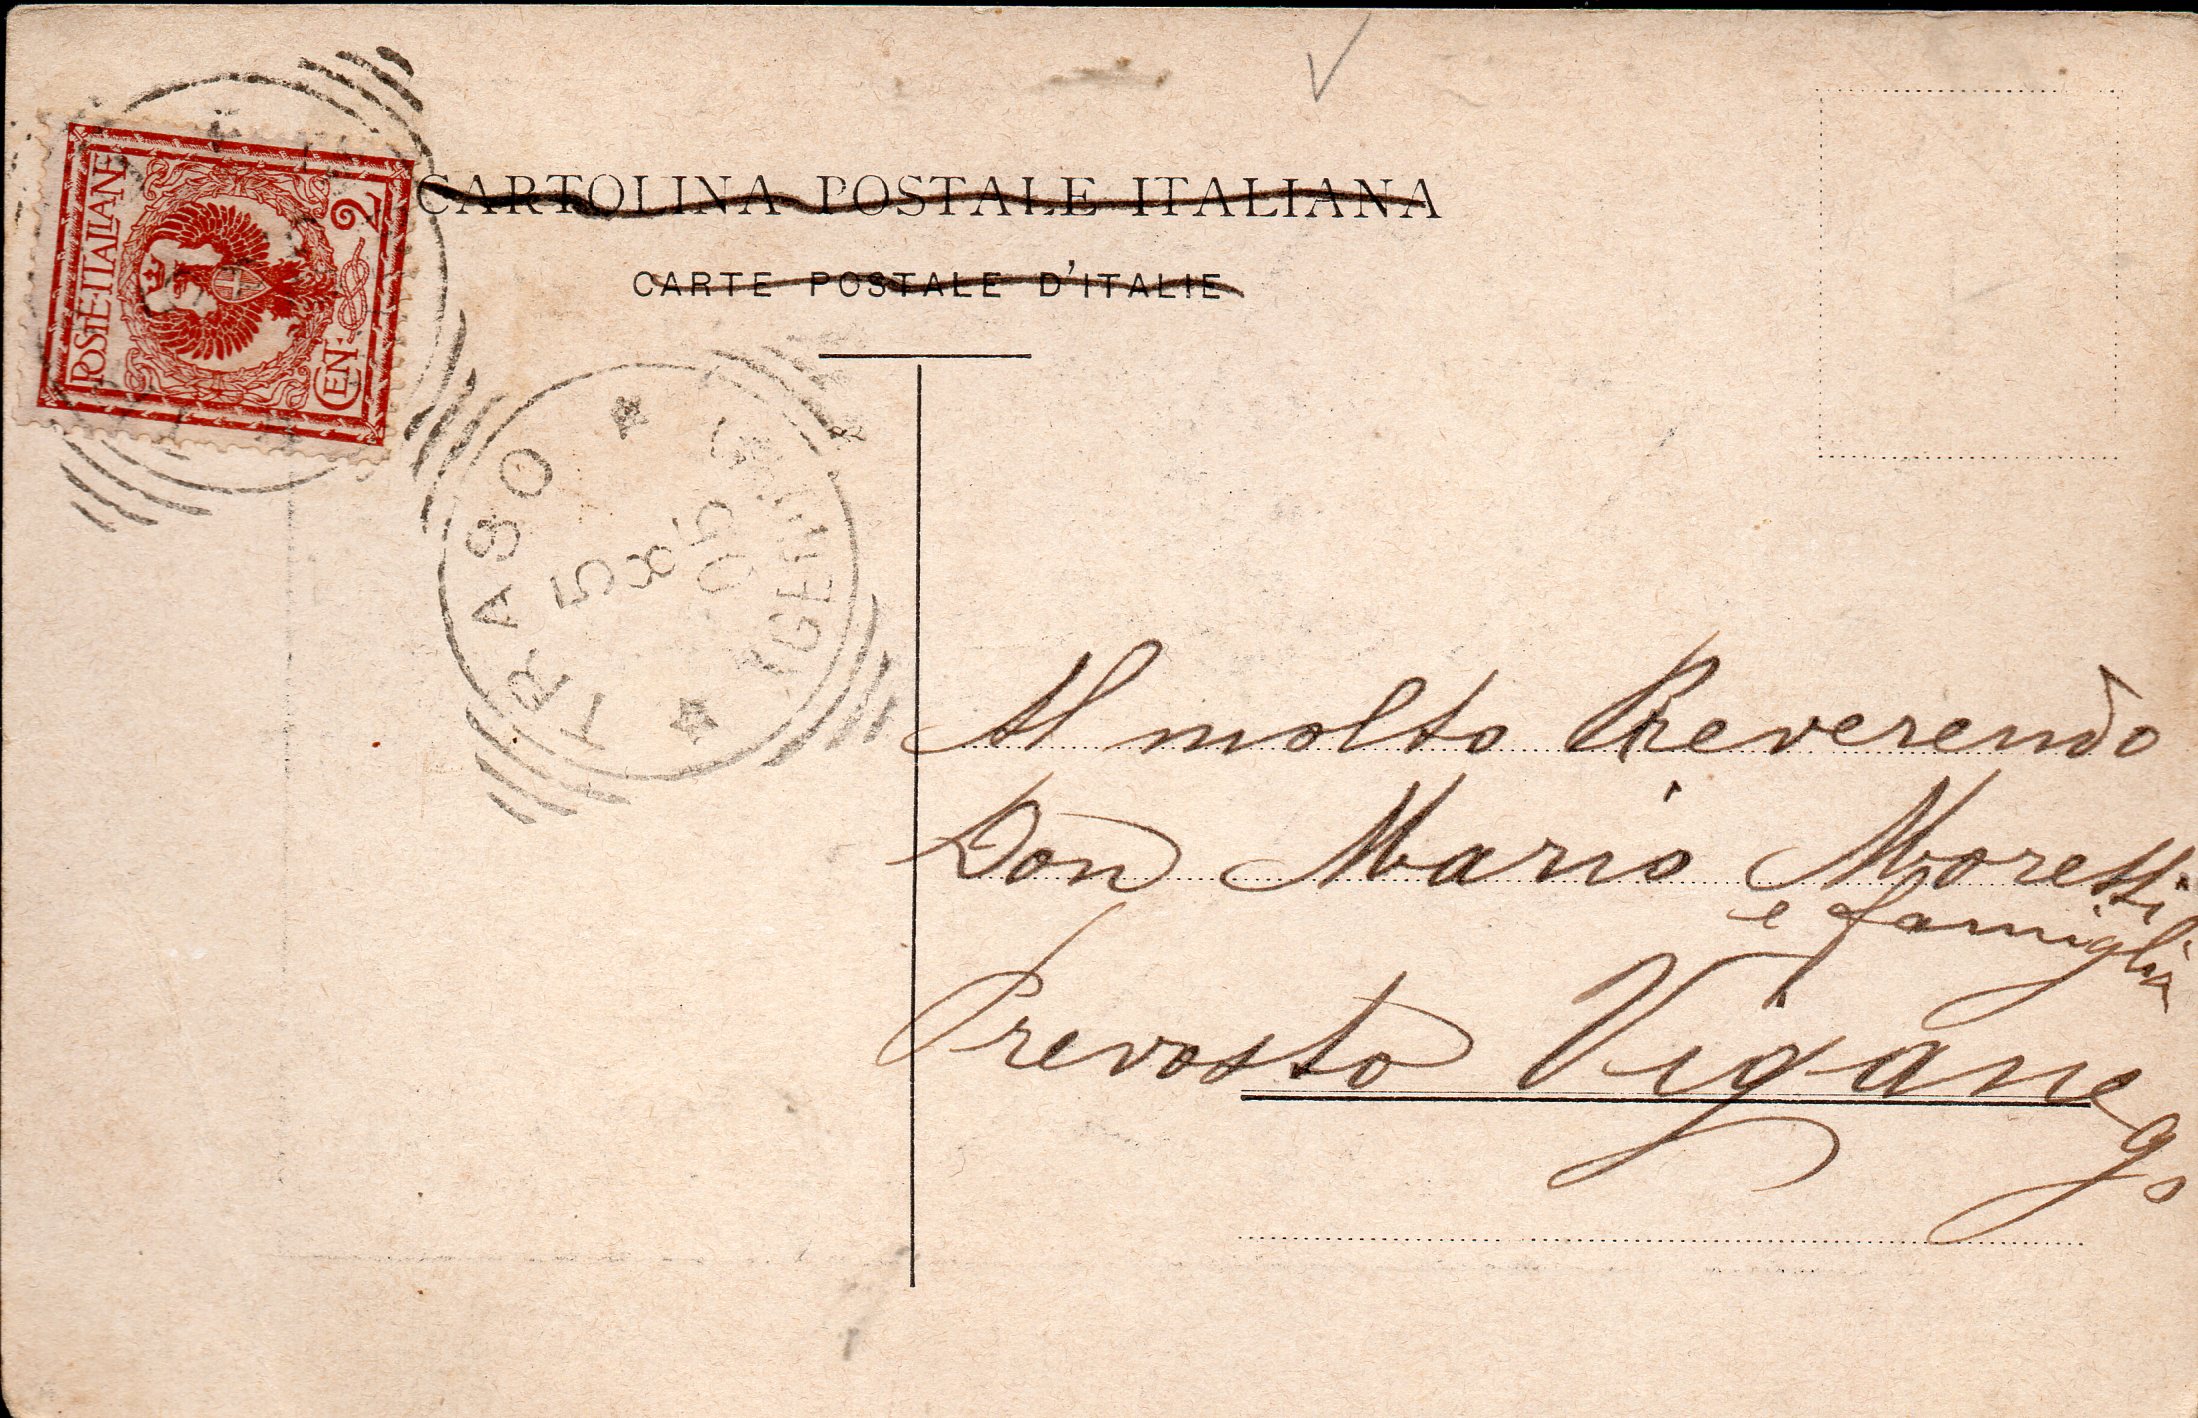 POSTE ITALIANE
CEN. 2
CARTOLINA POSTALE ITALIANA
CARTE POSTALE D'ITALIE
TRASO
5
8
05
(GENOVA)
Al molto Reverendo
Don Mario Moresti
e famiglia
Prevosto Viganego